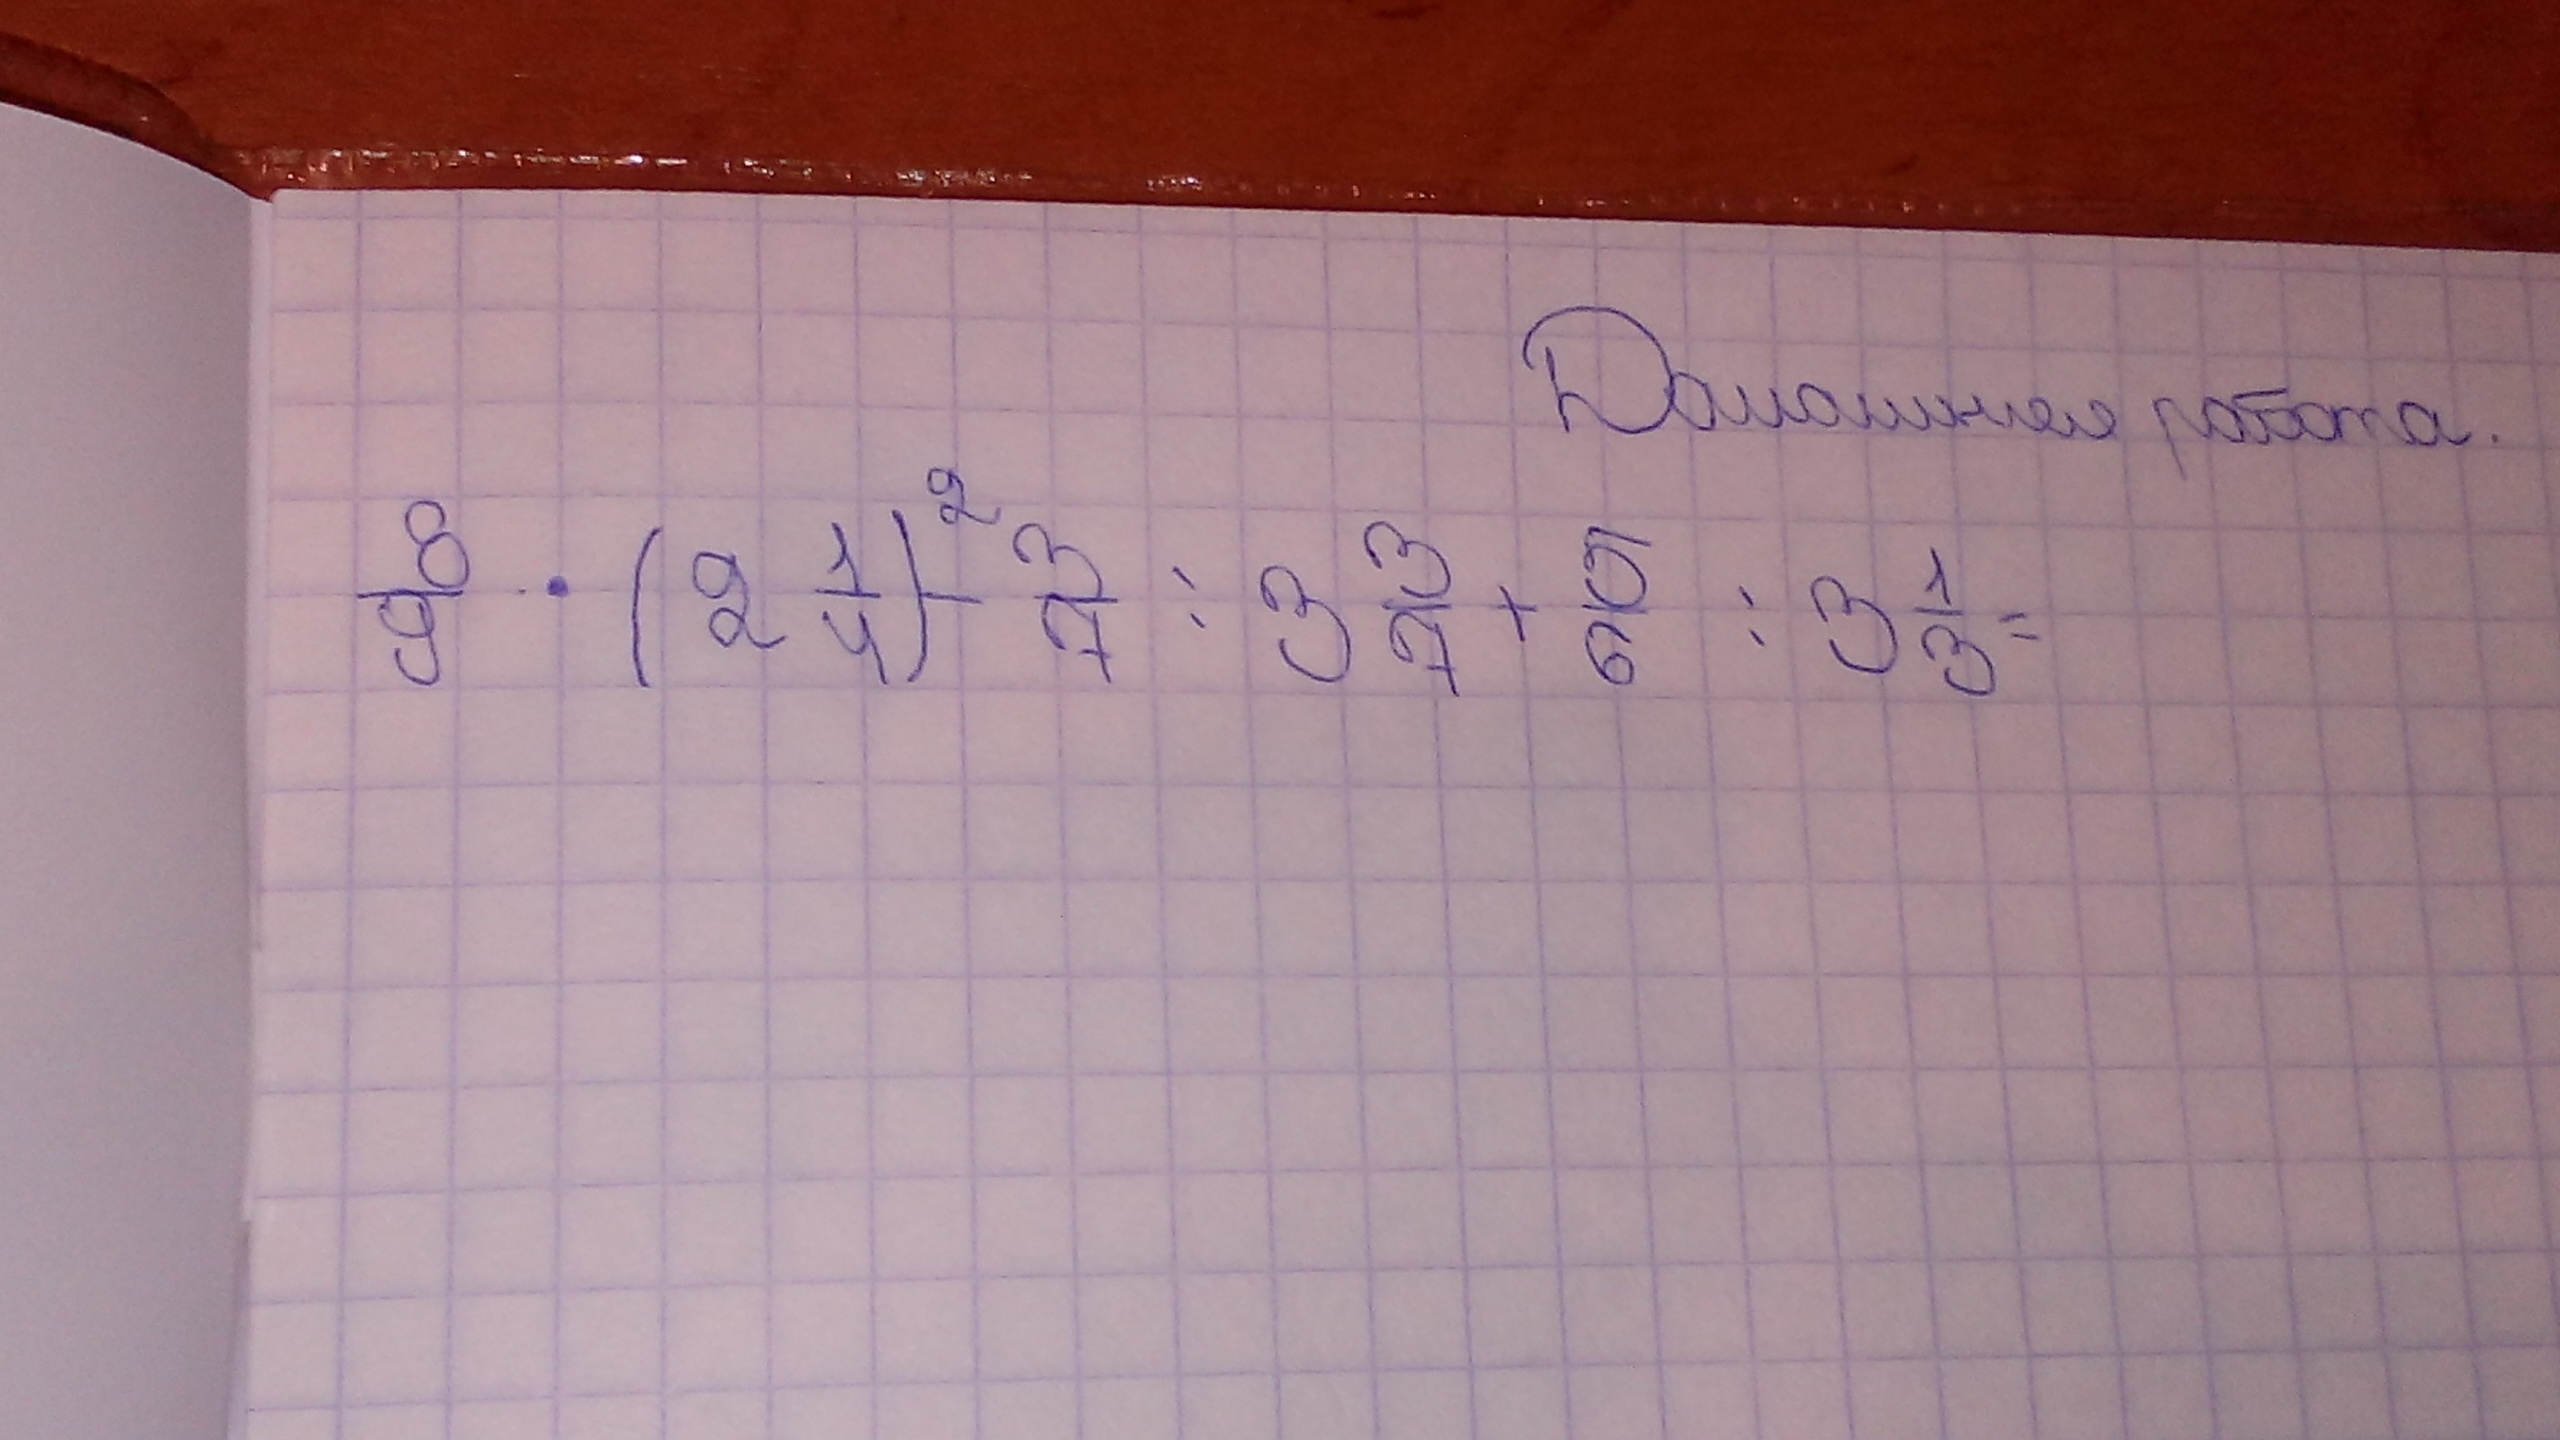 Домашняя работа.
8/9 · (2 1/4)² - 3/7 : 3 3/7 + 5/6 : 3 1/3 =